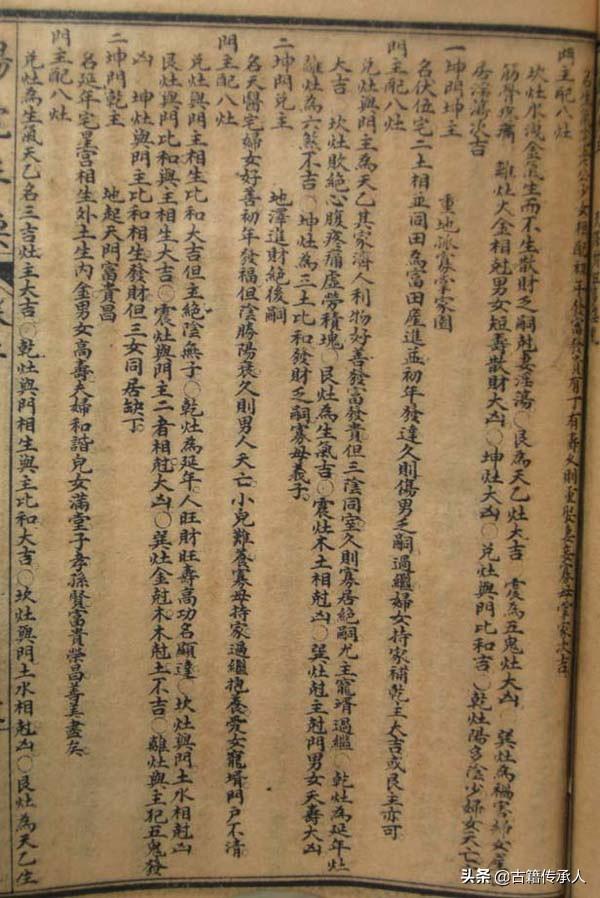 門主配八灶
坎灶水洩金氣生而不生散財乏嗣尅妻淫蕩〇艮為天乙灶大吉　震為五鬼灶大凶〇巽灶為禍害婦女產
筋脊疼痛　離灶火金相尅男女短壽散財大凶〇坤灶大吉〇兑灶與門比和吉〇乾灶陽多陰少婦女夭亡
居淫蕩次吉
一坤門坤主　重地孤寡掌家園
名伏位宅二土相並同田為富田產進益初年發達久則傷男乏嗣過繼婦女持家補乾主大吉或艮主亦可
門主配八灶
兑灶與門主為天乙其家濟人利物好善發富發貴但三陰同室久則寡居絶嗣尤主寵壻過繼〇乾灶為延年灶
大吉　坎灶敗絶心腹疼痛虛勞積塊〇艮灶為生氣吉〇震灶木土相尅凶〇巽灶尅主尅門男女夭壽大凶
離灶為六煞不吉〇坤灶為三土比和發財乏嗣寡母義子
二坤門兑主　地澤進財絶後嗣
名天醫宅婦女好善初年發福但陰勝陽衰久則男人夭亡小兒難養寡母持家過繼抱養愛女寵壻門户不清
門主配八灶
兑灶與門主相生比和大吉但主絶陰無子〇乾灶為延年人旺財旺壽高功名顯達〇坎灶與門土水相尅凶
艮灶與門比和與主相生大吉〇震灶與門主二者相尅大凶〇巽灶金尅木木尅土不吉〇離灶與主犯五鬼發
凶　坤灶與門主比和相生發財但三女同居缺丁
二坤門乾主　地起天門富貴昌
名延年宅星宫相生外土生内金男女高壽夫婦和諧兒女滿堂子孝孫賢富貴榮昌善美盡矣
門主配八灶
兑灶為生氣天乙名三吉灶主大吉〇乾灶與門相生與主比和大吉〇坎灶與門土水相尅凶〇艮灶為天乙生
头条 @古籍传承人